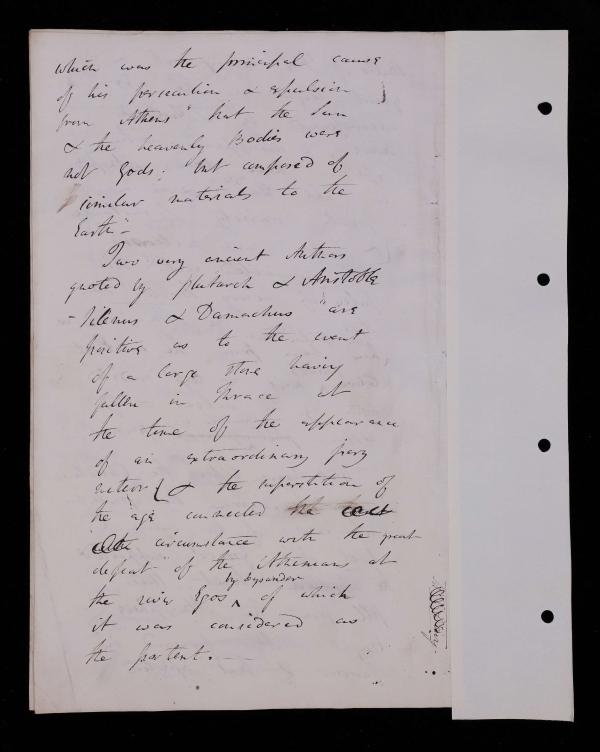 which was the principal cause
of his persecution & expulsion
from Athens "that the Sun
& the heavenly Bodies were
not Gods; but composed of
similar materials to the
Earth" –
Two very ancient Authors
quoted by Plutarch & Aristotle
– Silenus & Damachus "are
positive as to the event
of a large stone having
fallen in Thrace at
the time of the appearance
of an extraordinary fiery
meteor & the superstition of
the age connected the
circumstance with the great
defeat" of the Athenians at
by Lysander
the river Egos ^ of which
it was considered as
the portent. –